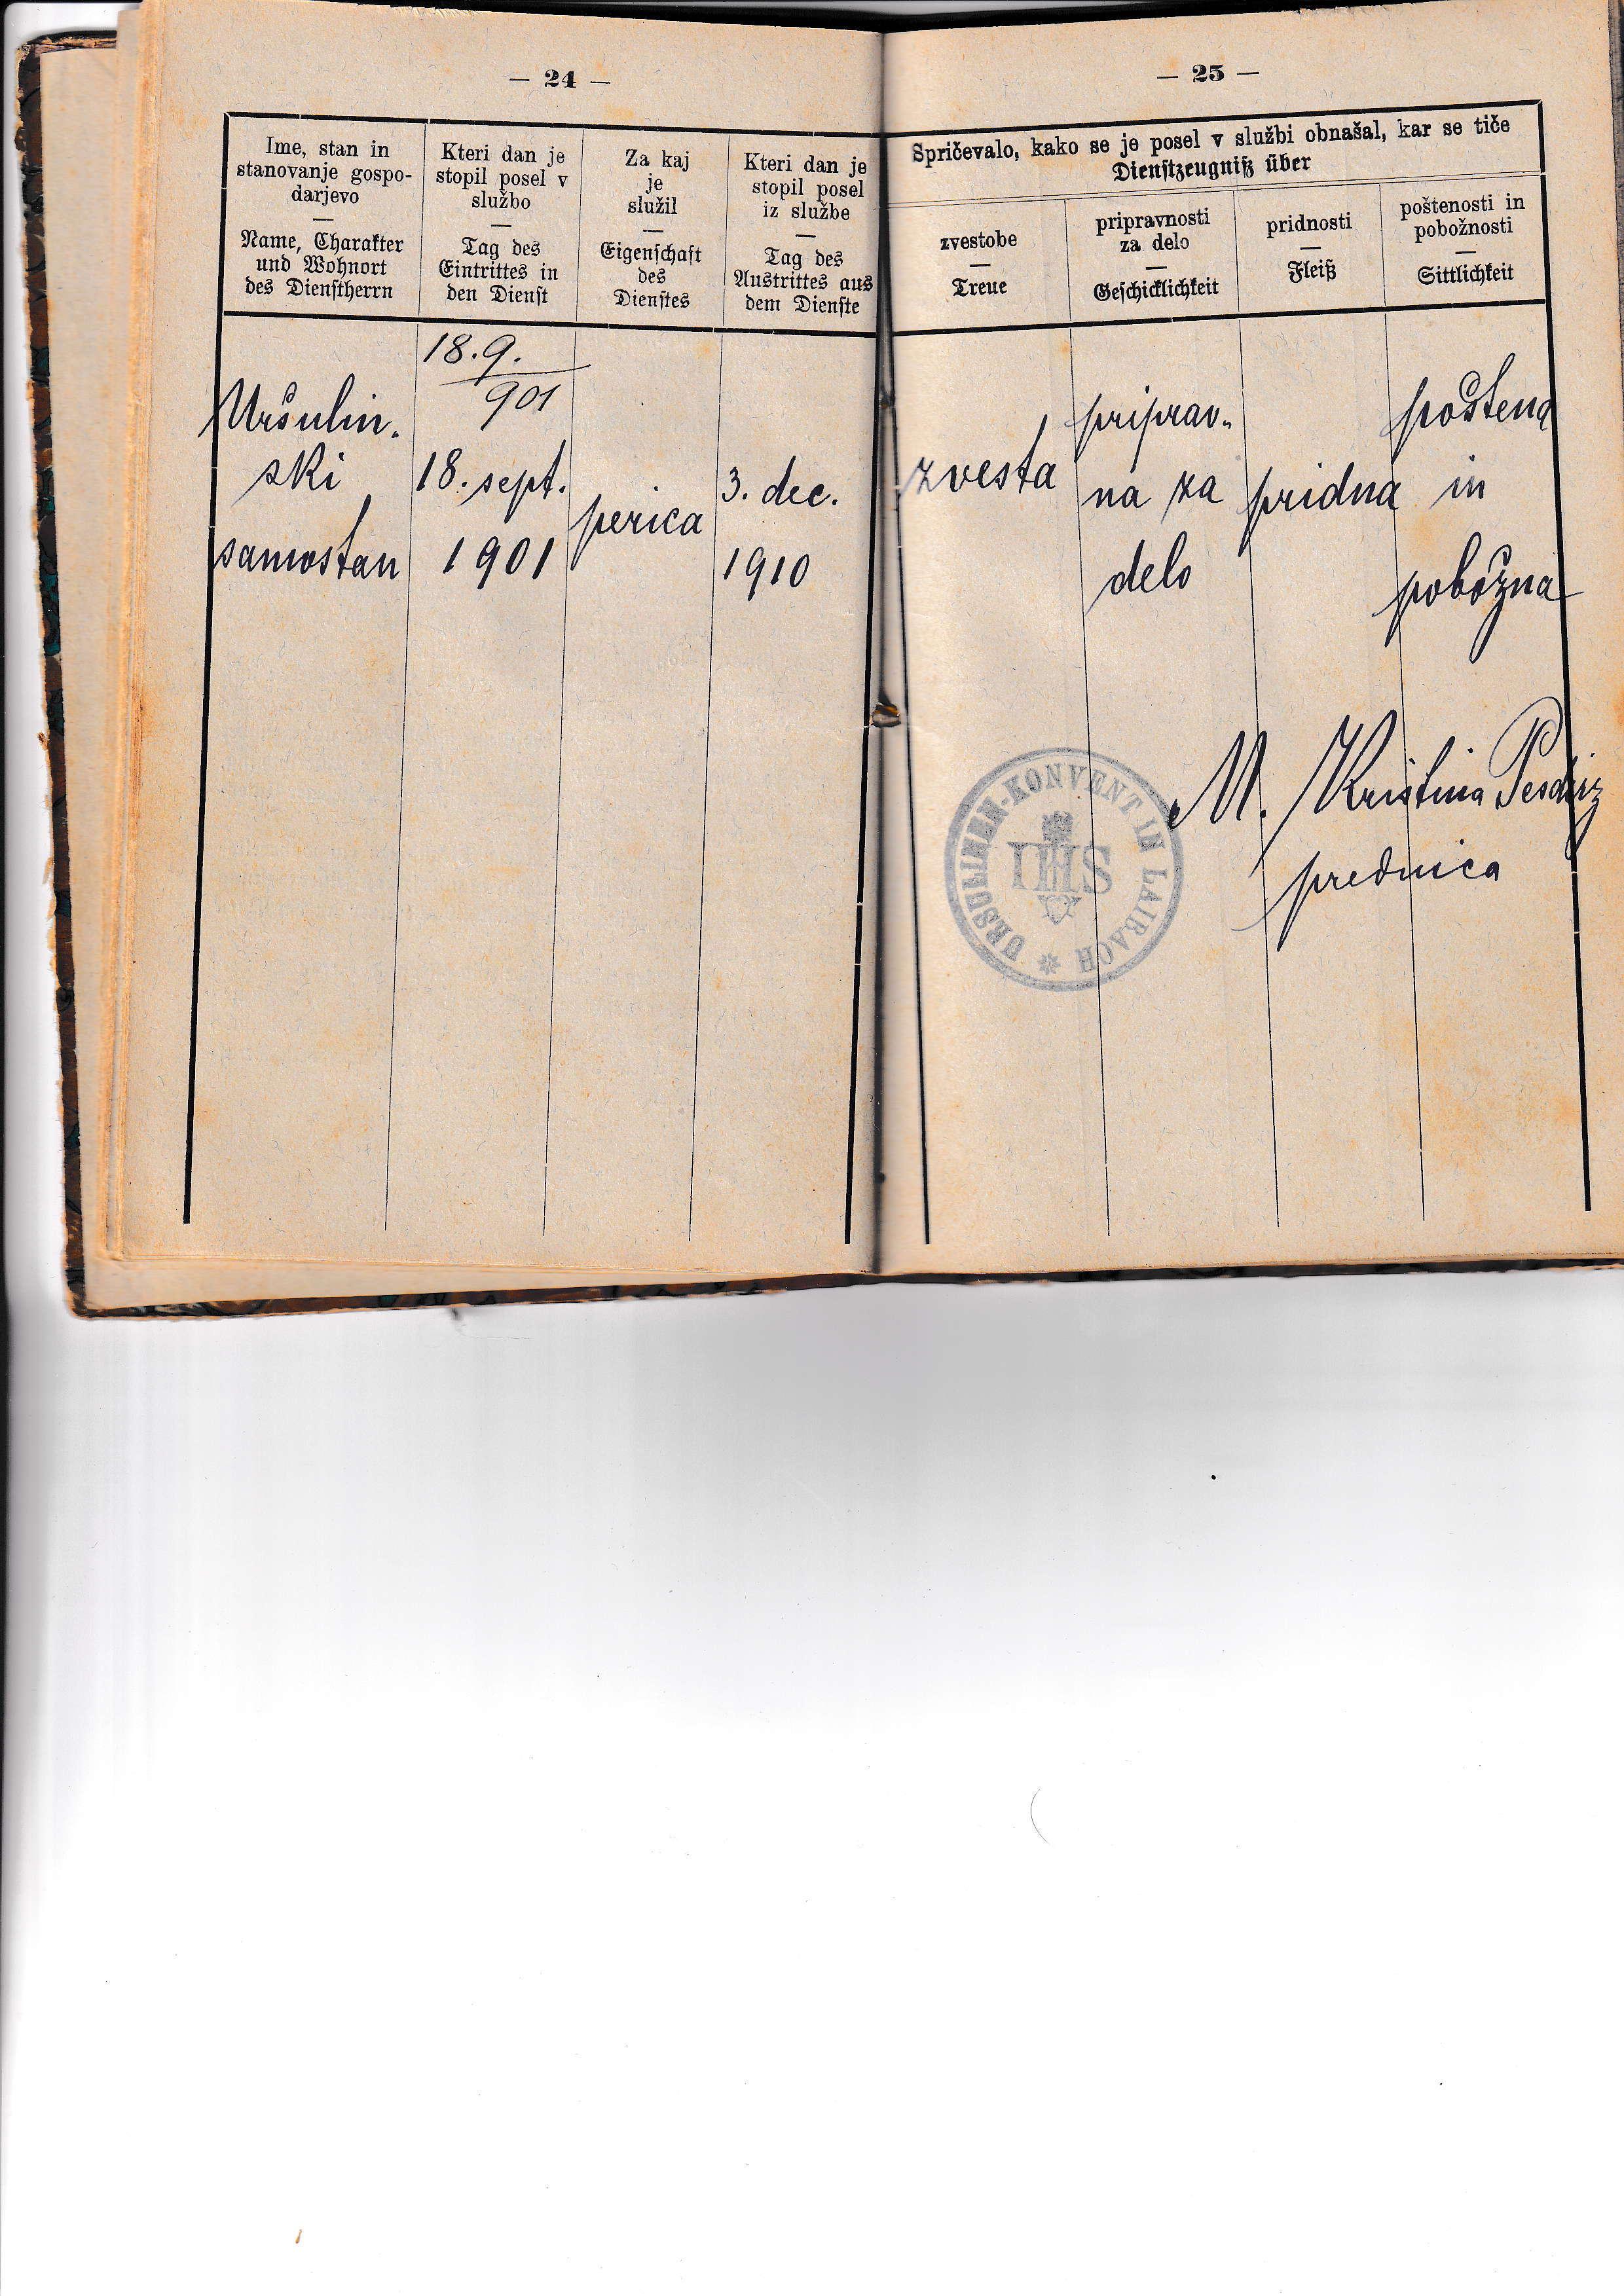 — 24 —
Ime, stan in
stanovanje gospo-
darjevo
—
Name, Charakter
und Wohnort
des Dienstherrn
Kteri dan je
stopil posel v
službo
—
Tag des
Eintrittes in
den Dienst
Za kaj
je
služil
—
Eigenschaft
des
Dienstes
Kteri dan je
stopil posel
iz službe
—
Tag des
Austrittes aus
dem Dienste
Uršulin-
ski
samostan
18.9.
901
18. sept.
1901
perica
3. dec.
1910
— 25 —
Spričevalo, kako se je posel v službi obnašal, kar se tiče
Dienstzeugniß über
zvestobe
—
Treue
pripravnosti
za delo
—
Geschicklichkeit
pridnosti
—
Fleiß
poštenosti in
pobožnosti
—
Sittlichkeit
zvesta
priprav-
na za
delo
pridna
poštena
in
pobožna
M. Kristina
prednica
URSULINEN-KONVENT IN LAIBACH
IHS